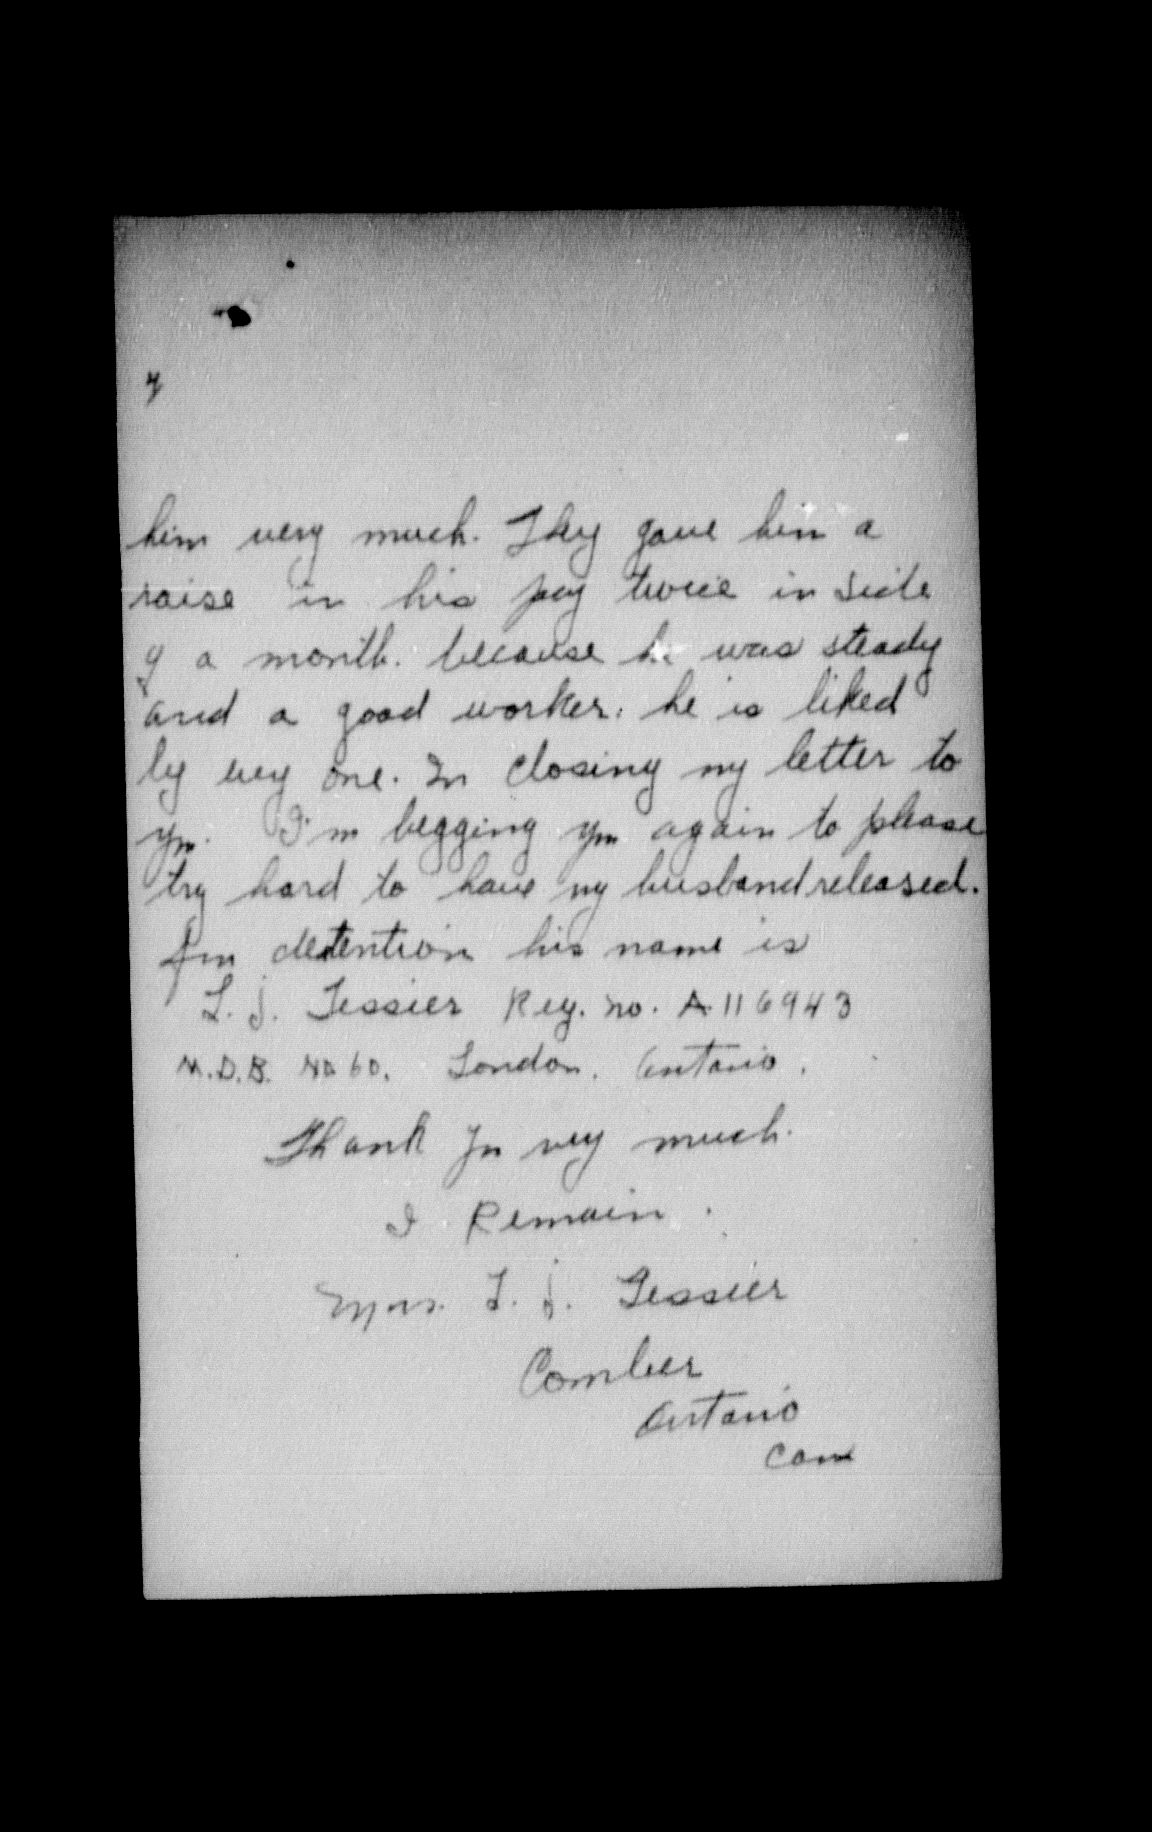 4
him very much. They gave him a
raise in his pay twice in side
of a month. because he was steady
and a good worker. he is liked
by every one. In closing my letter to
you. I'm begging you again to please
try hard to have my husband released.
from detention his name is
L. J. Tessier Reg. no. A 116943
M.D.B. No 60. London. Ontario.
Thank you very much.
I Remain.
Mrs. L. J. Tessier
Comber
Ontario
Can